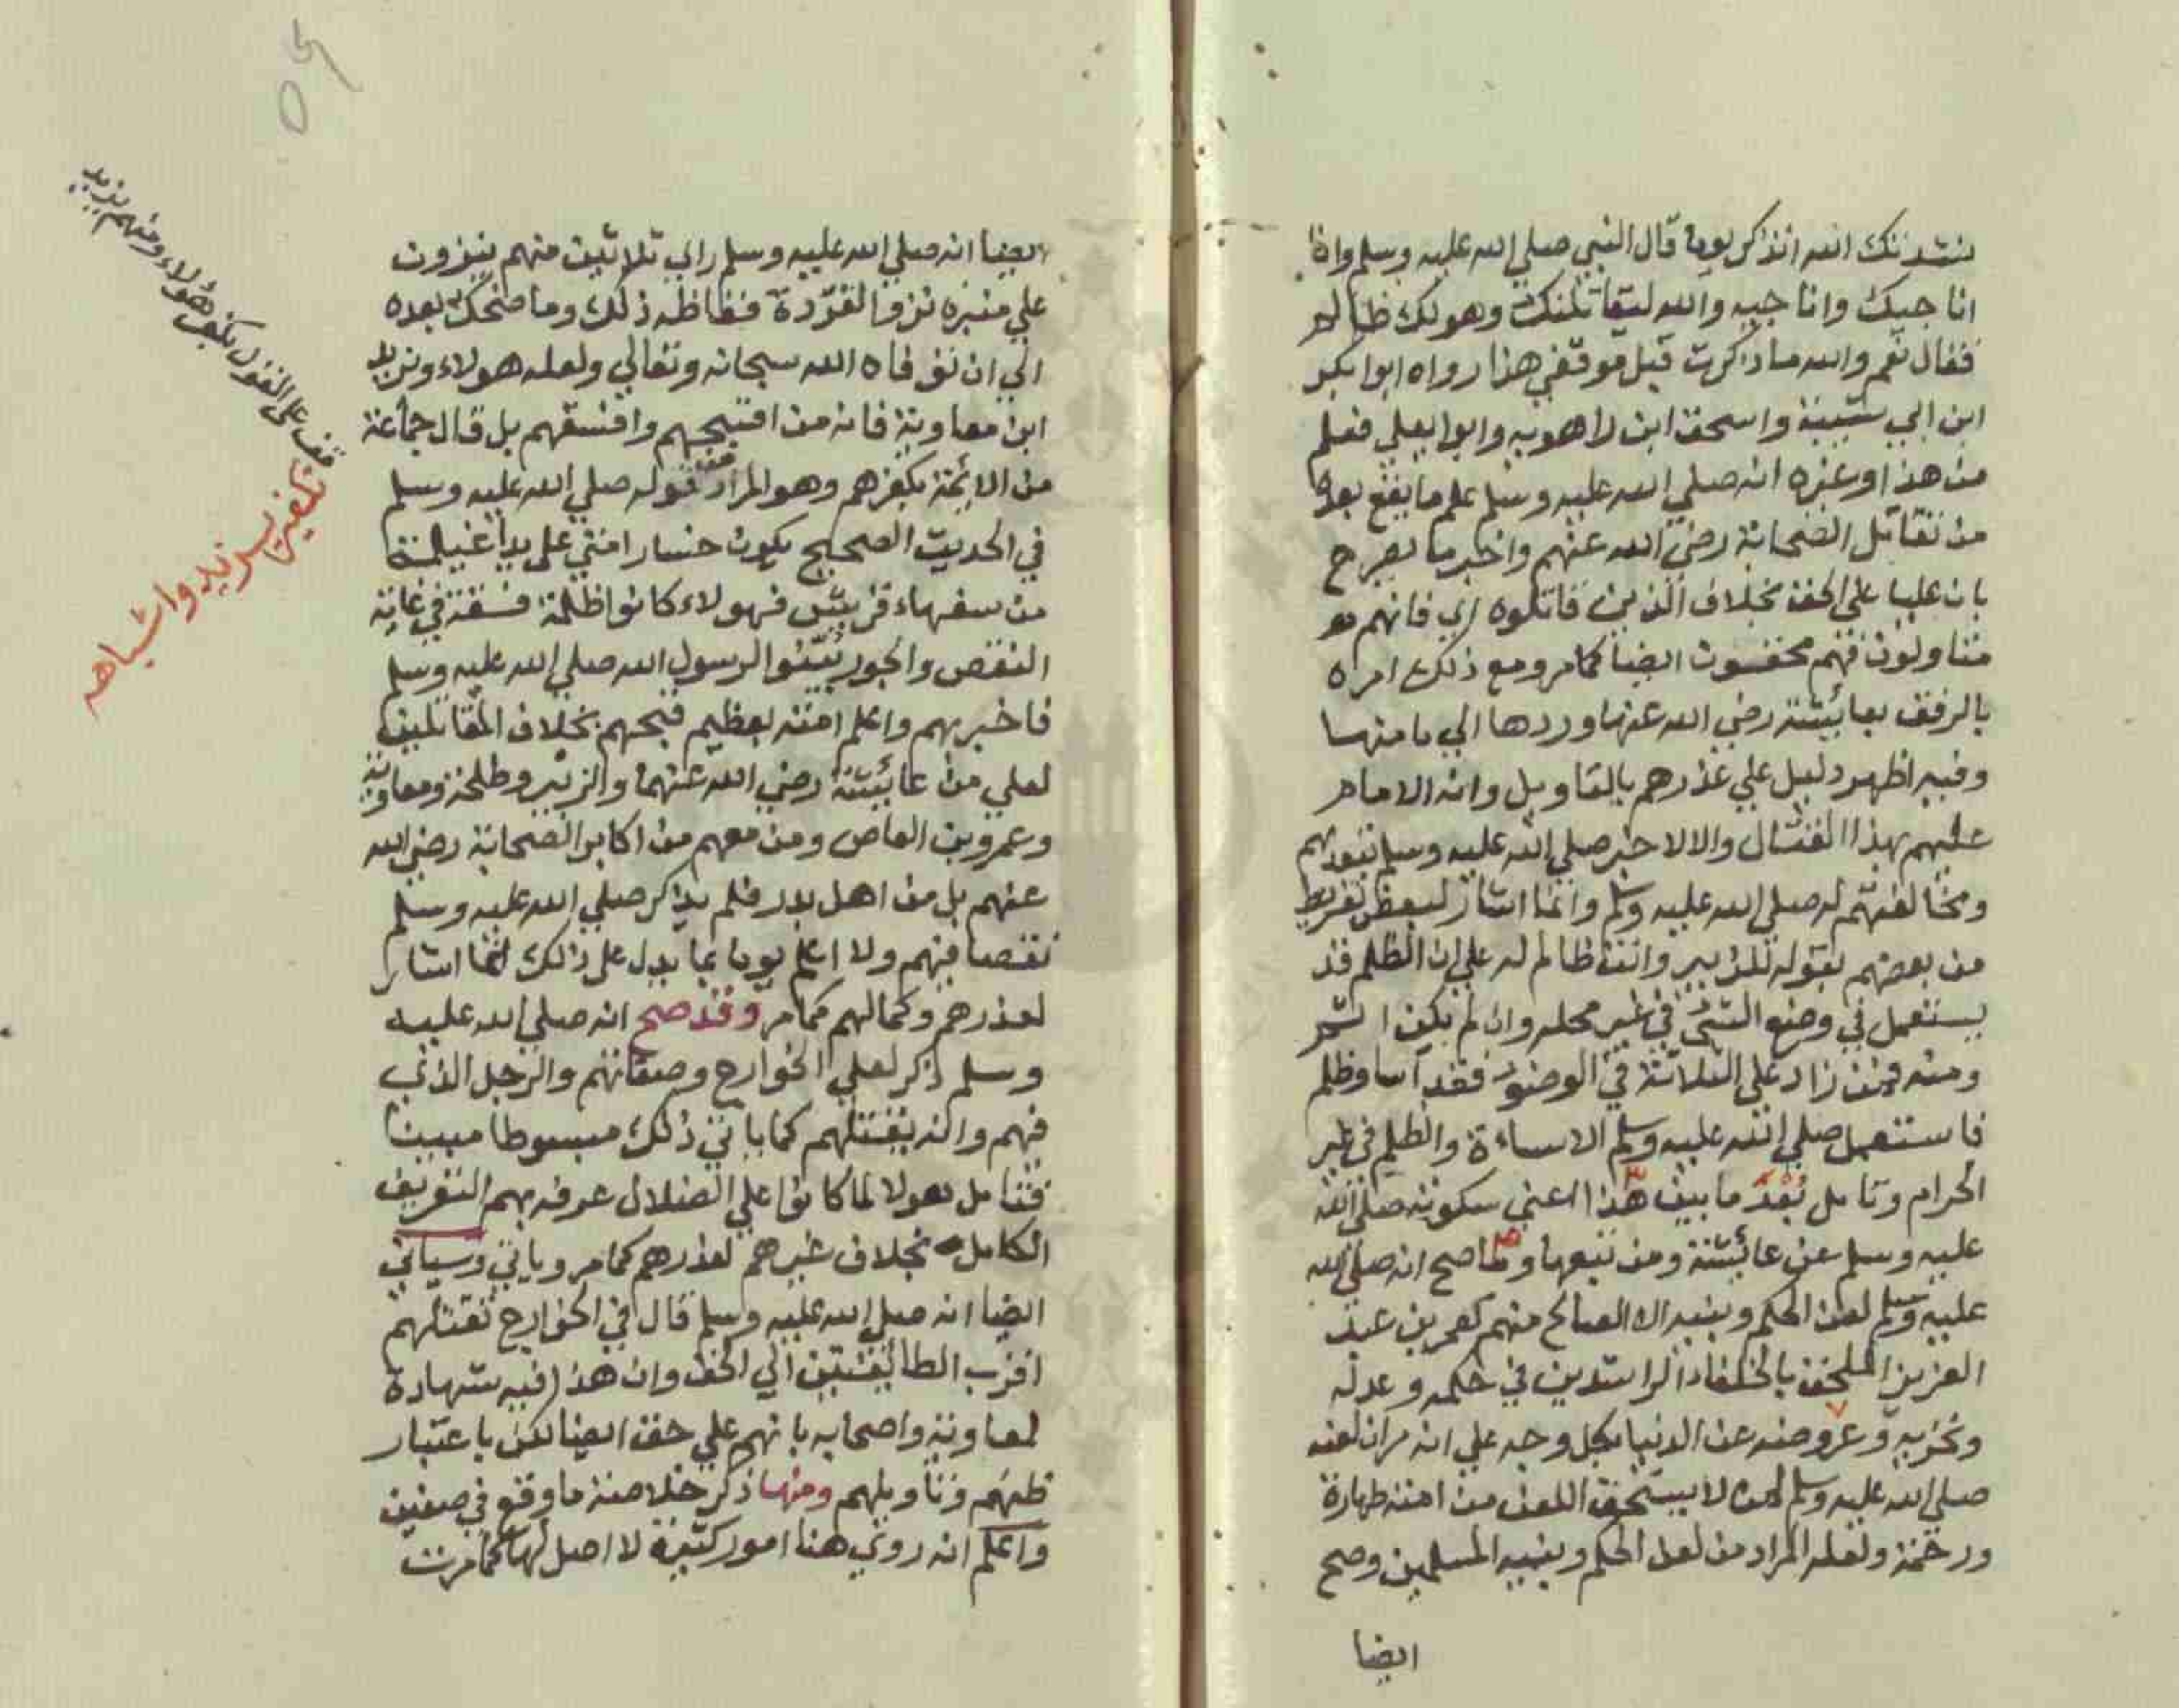 نشدتك الله اتذكر يوما قال النبي صلي الله عليه وسلم واذا
اناجيك واناجيه والله ليقاتلنك وهو لك ظالم
فقال نعم والله ما ذكرت قبل موقفي هذا رواه ابوا بكر
ابن ابي شيبة واسحق ابن راهويه وابوا يعلي فعلم
من هذا وغيره انه صلي الله عليه وسلم علم ما يقع بعده
من تقاتل الصحابة رضي الله عنهم واخبر ما يصرح
بان عليا علي الحق بخلاف الذين قاتلوه اي فانهم
متاولون فهم محقون ايضا كما مر ومع ذلك امره
بالرفق بعائشة رضي الله عنها وردها الي مامنها
وفيه اظهر دليل علي عذرهم بالتاويل وانه الامام
عليهم بهذا القتال والا لاخبر صلي الله عليه وسلم بتعديهم
ومخالفتهم له صلي الله عليه وسلم وانما اشار لبعض تفريط
من بعضهم بقوله للزبير وانت ظالم له علي ان الظلم قد
يستعمل في وضع الشئ في غير محله وان لم يكن اثم
ومنه فمن زاد علي الثلاثة في الوضوء فقد اسا وظلم
فاستعمل صلي الله عليه وسلم الاساءة والظلم في غير
الحرام وتامل بعد ما بين هذا اعني سكوته صلي الله
عليه وسلم عن عائشة ومن تبعها وما صح انه صلي الله
عليه وسلم لعن الحكم وبنيه الا الصالح منهم كعمر بن عبد
العزيز الملحق بالخلفاء الراشدين في حكمه وعدله
وتحزيه وعروضه عن الدنيا بكل وجه علي انه مر ان لعنه
صلي الله عليه وسلم لمن لا يستحق اللعن من امته طهارة
ورحمة ولعله المراد من لعن الحكم وبنيه المسلمين وصح
ايضا
ايضا انه صلي الله عليه وسلم راي ثلاثين منهم ينزون
علي منبره نزو القردة فغاظه ذلك وما ضحك بعده
الي ان توفاه الله سبحانه وتعالي ولعله هولاء ويزيد
ابن معاوية فانه من اقبحهم وافسقهم بل قال جماعة
من الائمة بكفرهم وهو المراد من قوله صلي الله عليه وسلم
في الحديث الصحيح يكون خسار امتي علي يد اغيلمة
من سفهاء قريش فهولاء كانوا ظلمة فسقة في غاية
النقص والجور بينوا لرسول الله صلي الله عليه وسلم
فاخبر بهم واعلم امته بعظيم قبحهم بخلاف المقاتلين
لعلي من عائشة رضي الله عنها والزبير وطلحة ومعاوية
وعمرو بن العاص ومن معهم من اكابر الصحابة رضي الله
عنهم بل من اهل بدر فلم يذكر صلي الله عليه وسلم
نقصا فيهم ولا اعلم يوما بما يدل علي ذلك انما اشار
لعذرهم وكمالهم كما مر وقد صح انه صلي الله عليه
وسلم ذكر لعلي الخوارج وصفاتهم والرجل الذي
فهم وانه يقتلهم كما ياتي ذلك مبسوطا مبينا
فتامل هولا لما كانوا علي الضلال عرفه بهم التعريف
الكامل بخلاف غيرهم لعذرهم كما مر وياتي وسياتي
ايضا انه صلي الله عليه وسلم قال في الخوارج تقتلهم
اقرب الطائفتين الي الحق وان هذا فيه شهادة
لمعاوية واصحابه بانهم علي حق ايضا لكن باعتبار
ظنهم وتاويلهم ومنها ذكر خلاصة ما وقع في صفين
واعلم انه روي هنا امور كثيرة لا اصل لها كما مرت
قف علي القول بكفر هؤلاء ومنهم يزيد
تكفير يزيد واشباهه